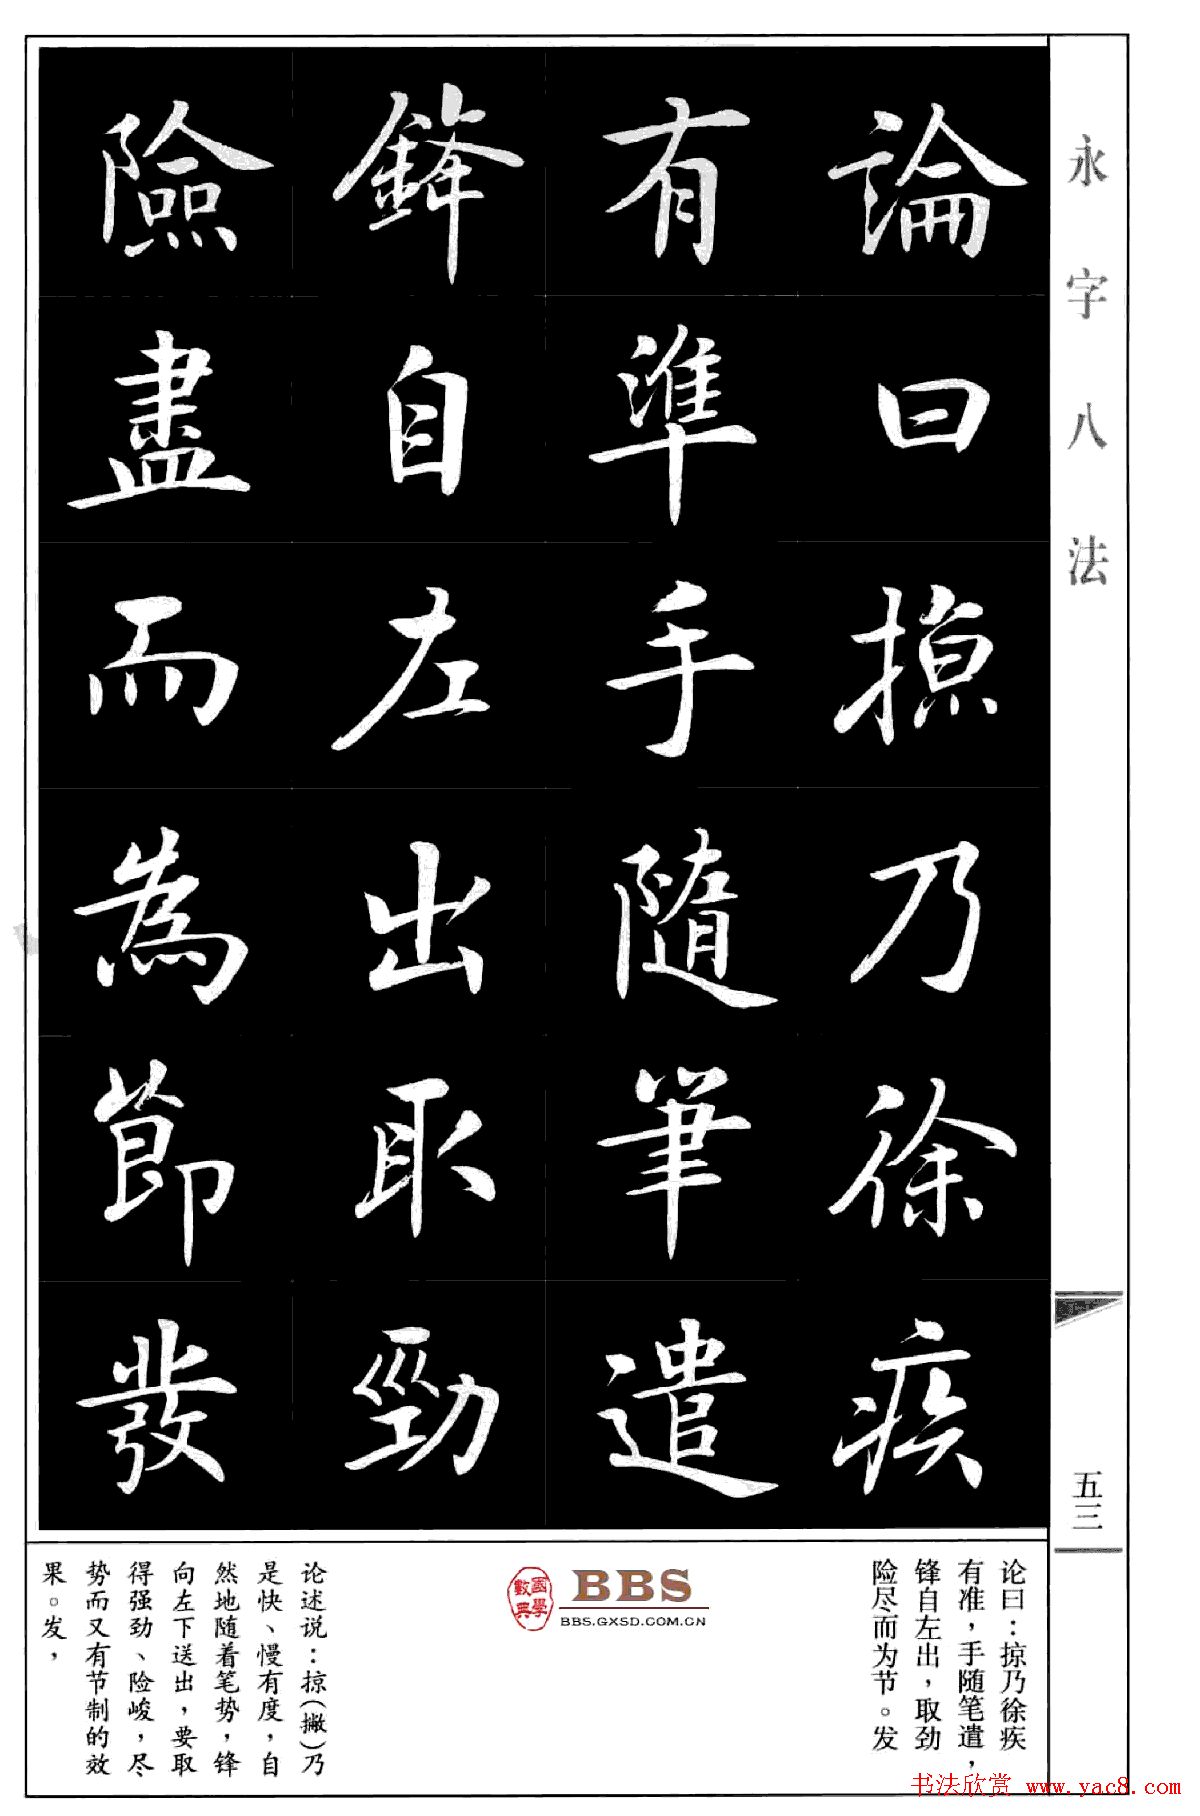 永字八法
論曰掠乃徐疾
有準手隨筆遣
鋒自左出取勁
險盡而為節發
五三
论曰：掠乃徐疾
有准，手随笔遣，
锋自左出，取劲
险尽而为节。发
國學
數典
BBS
BBS.GXSD.COM.CN
论述说：掠(撇)乃
是快、慢有度，自
然地随着笔势，锋
向左下送出，要取
得强劲、险峻，尽
势而又有节制的效
果。发，
书法欣赏 www.yac8.com